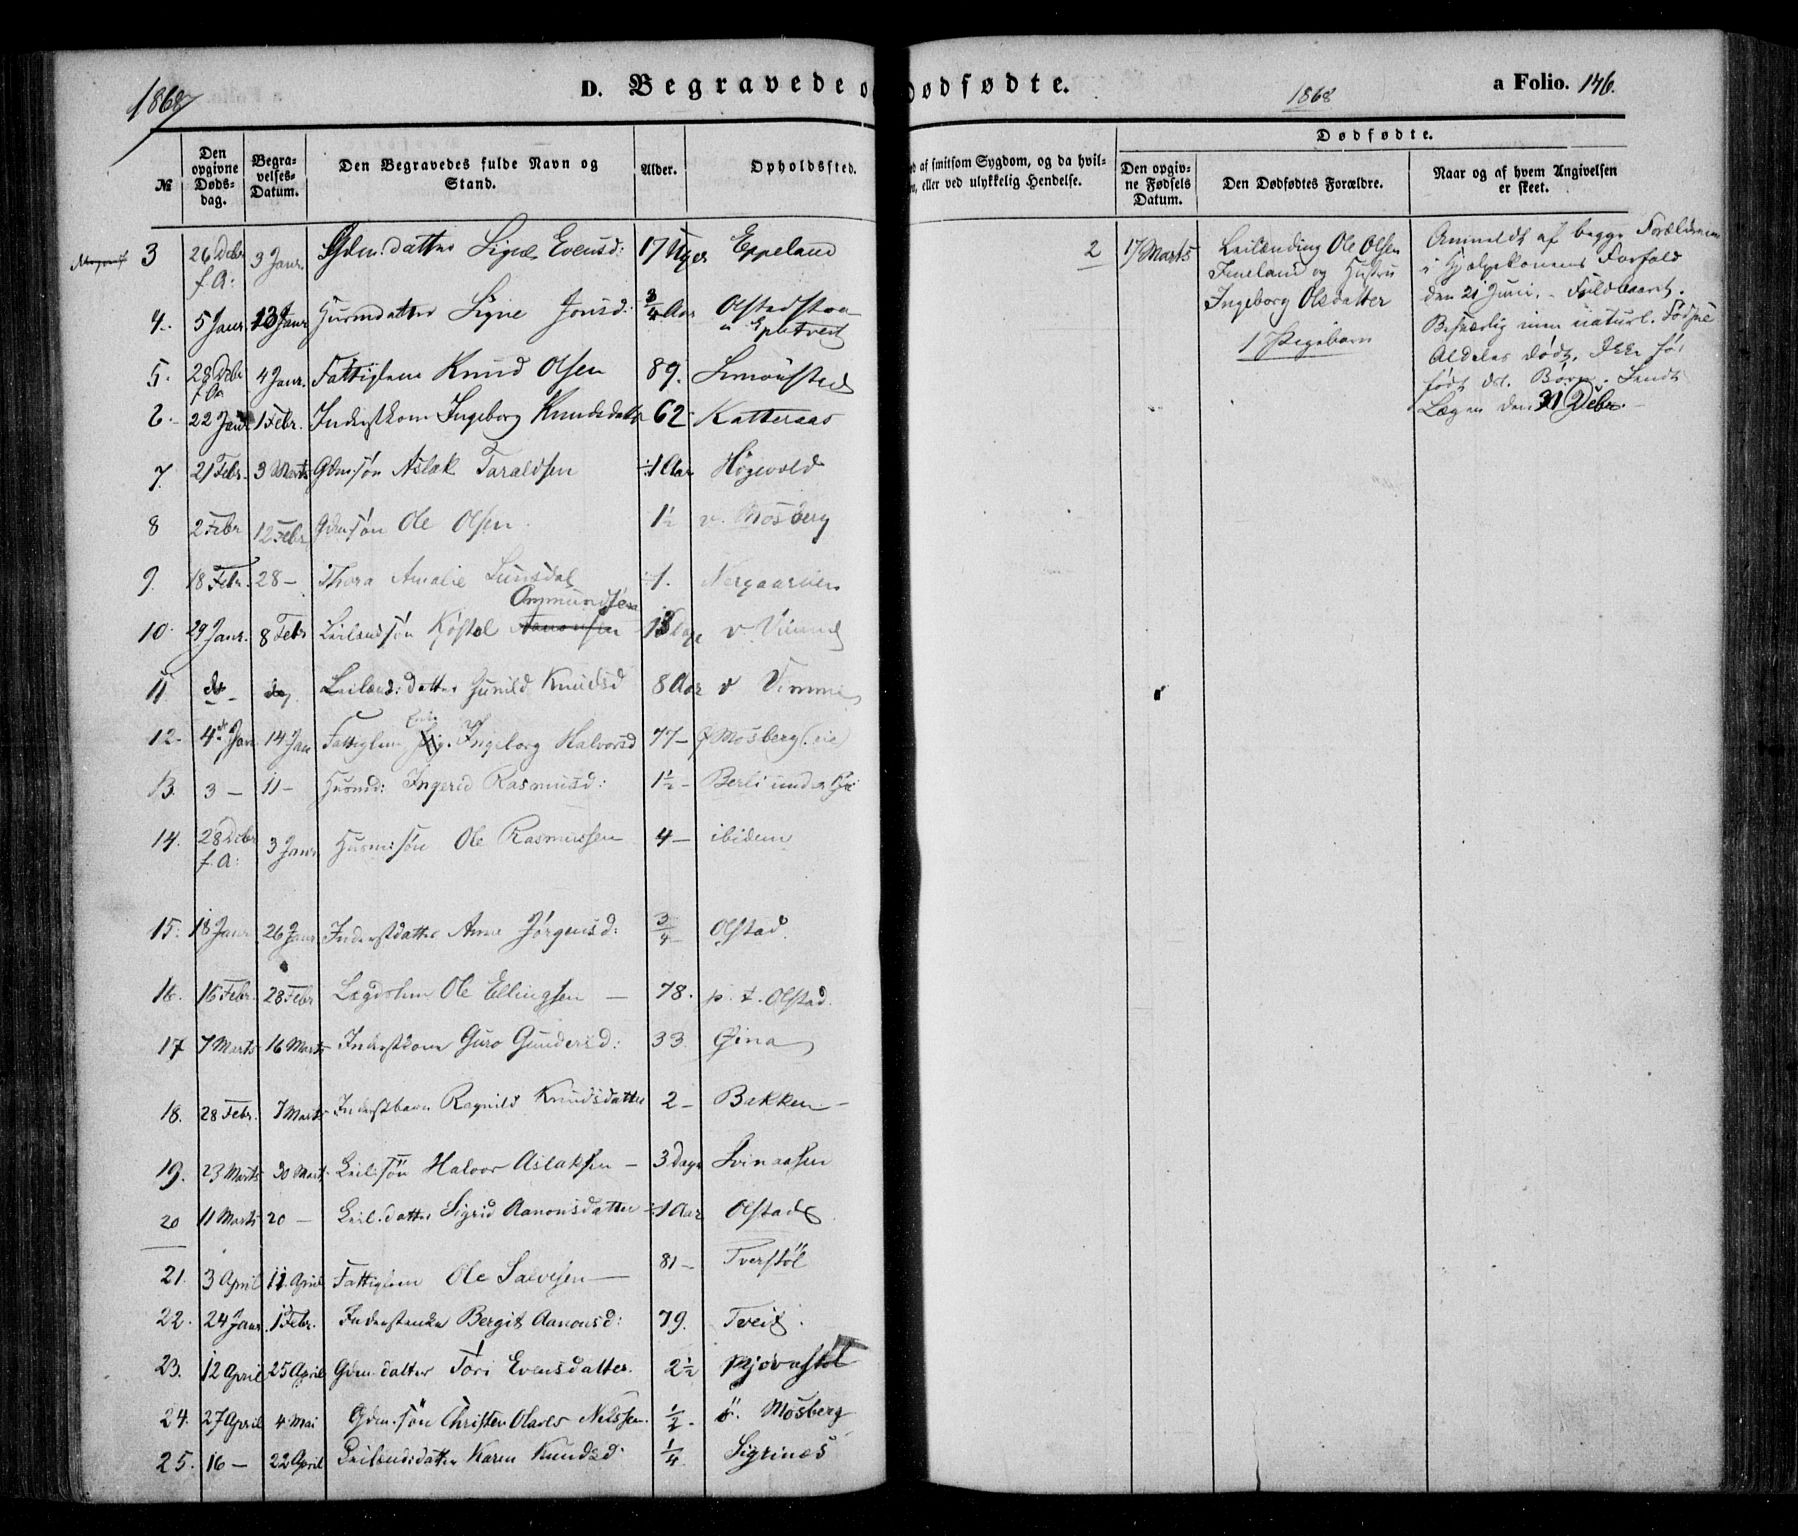 1868
D. Begravede o
Dødfødte.
1868
a Folio. 146.
№
Den opgivne Døds-dag.
Begra-velses-Datum.
Den Begravedes fulde Navn og Stand.
Alder.
Opholdssted.
af smitsom Sygdom, og da hvil-
, eller ved ulykkelig Hendelse.
Dødfødte.
Den opgiv-ne Fødsels Datum.
Den Dødfødtes Forældre.
Naar og af hvem Angivelsen er skeet.
3 26 Debr f. A: 3 Janr. Gdm: datter Signe Evensd: 17 Uger Eppeland
4. 5 Janr 13 Janr Husmdatter Signe Jonsd: 3/4 Aar Olstad
5. 28 Debr f. A. 4 Janr. Fattiglem Knud Olsen 89. Simonsted
6. 22 Janr 1 Febr. Inderstkone Ingeborg Knudsdatter 62 Katteraas
7. 21 Febr. 3 Marts Gdmsøn Aslak Taraldsen ÷1 Aar Høgevold
8 2 Febr 12 Febr Gdmsøn Ole Olsen 1½ v. Mosberg
9. 18 Febr. 28 – Thora Amalie ÷1. Nergaarden
Ommundsen
10. 29 Janr. 8 Febr Leilændsøn Kjøstol Aanonsen 13 Dage v. Vimme
11 do – do Leilænd: datter Gunild Knudsd 8 Aar v Vimme
12. 4 Jan 14 Jan Fattiglem Enke Ingeborg Halvorsd 77 – Ø Mosberg (eie)
13. 3 – 11 – Husmd: Ingered Rasmusd: 1½ – Berli under
14. 28 Debr f. A: 3 Janr Husm: søn Ole Rasmussen 4 – ibidem
15. 18 Janr 26 Janr Inderstdatter Anne Jørgensd: 3/4 Olstad.
16. 16 Febr. 28 Febr Lægdslem Ole Ellingsen – 78. p. t. Olstad.
17 7 Marts 16 Marts Inderstkone Guro Gundersd: 33 Øina
18. 28 Febr. 7 Marts Inderstbarn Ragnild Knudsdatter 2 – Bakken –
19. 23 Marts 30 Marts Leil: søn Halvor Aslaksen – 3 Dage Svinaasen
20 11 Marts 20 – Leil. datter Sigrid Aanonsdatter ÷1 Aar Olstad
21. 3 April 11 April Fattiglem Ole Salvesen – 81 – Tverstøl
22. 24 Janr. 1 Febr. Inderstenke Bergit Aanonsd: 79. Tveit.
23. 12 April 25 April Gdm. datter Tori Evensdatter. 2½ Mjovastøl
24. 27 April 4 Mai Gdm. søn Christen Olaves Nilssen. ½ – ø. Mosberg
25. 16 – 22 April Leilændsdatter Karen Knudsd. ¼ Sigrinæs
2 17 Marts
Leilænding Ole Olsen
Fineland og Hustru
Ingeborg Olsdatter
1 Pigebarn
Anmeldt af begge Forældrene
i Hjælpekonens Forfald
den 21 Juni. – Fuldbaaret.
Besværlig men naturl. Fødsel
Aldeles dødt. Ikke før
født dd. Børn. Sendt
Lægen den 31 Debr. –